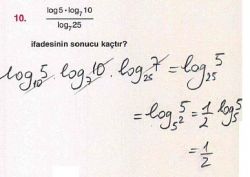 10. log5·log₇10 / log₇25
ifadesinin sonucu kaçtır?
log₁₀5 · log₇10 · log₂₅7 = log₂₅5
= log₅²5 = 1/2 log₅5
= 1/2